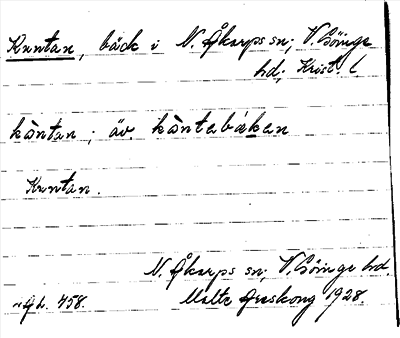 Kuntan, bäck i N. Åkarps sn; V. Göinge
hd; Krist. l.
kòntan; äv. kòntabä̀ken
Kuntan.
N. Åkarps sn; V. Göinge hd.
Gb. 458. Malte Areskoug 1928.